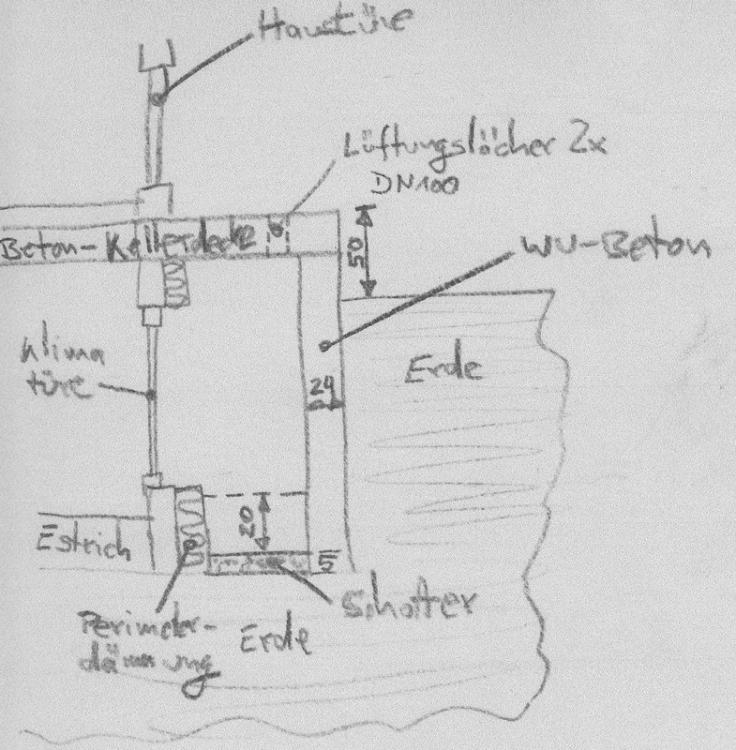 Haustüre
Lüftungslöcher 2x
DN100
Beton-Kellerdecke
50
WU-Beton
Klima
türe
Erde
24
20
Estrich
5
Schotter
Perimeter-
dämmung
Erde